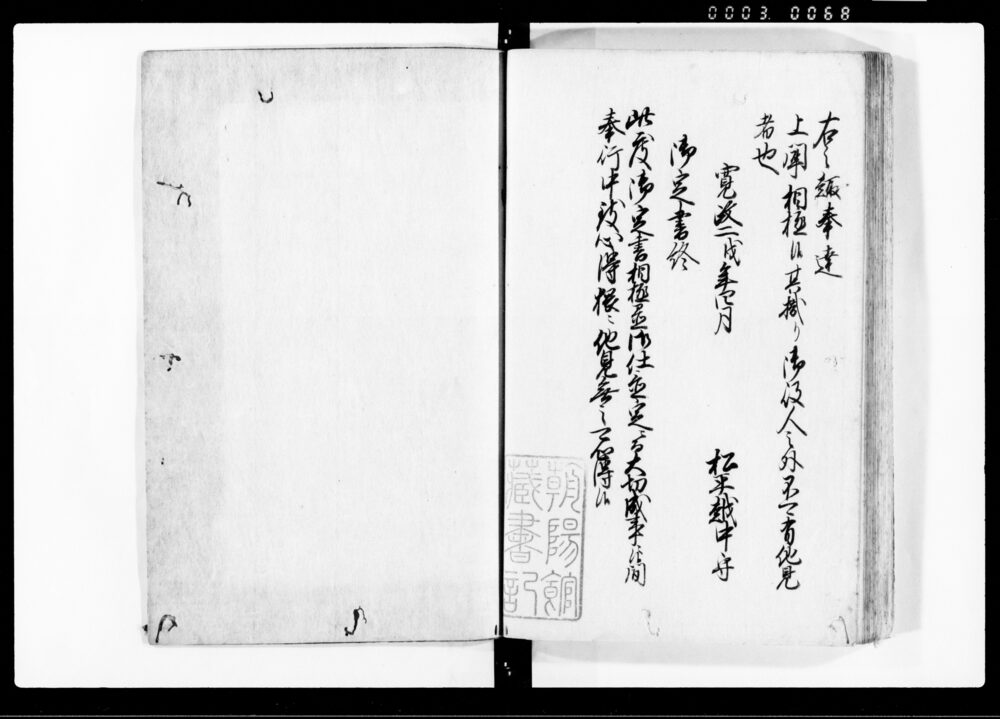 0003 0068
右之趣奉達
上聞相極候其掛り御役人之外不可有他見
者也
寛政二戌年四月
松平越中守
御定書終
此度御定書相極並御仕置定書大切成事候間
奉行中致心得猥ニ他見無之可心得候
朝陽館
蔵書記